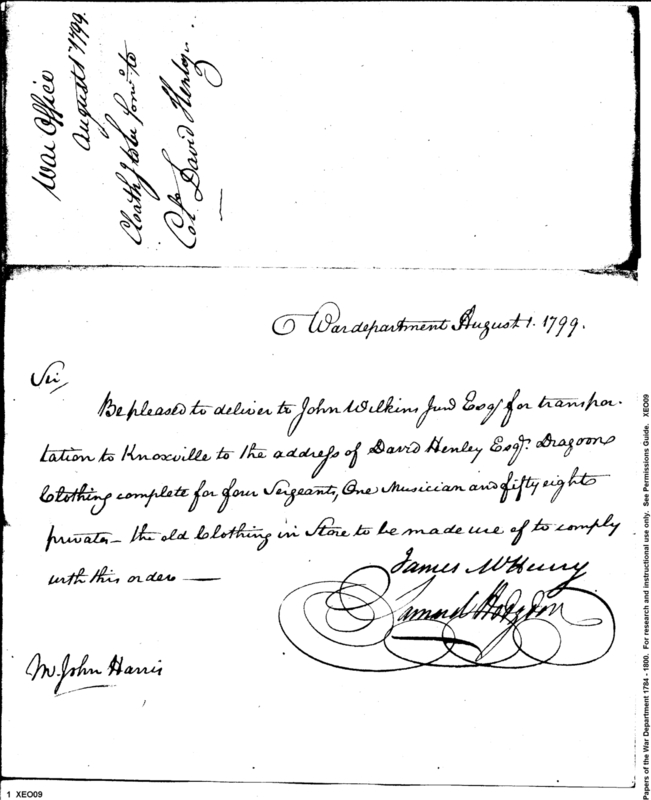 War Office
August 1st 1799.
Cloath'g to be forw'd to
Col. David Henley.
War department August 1. 1799.
Sir,
Be pleased to deliver to John Wilkins Junr Esqr for transpor-
tation to Knoxville to the address of David Henley Esqr. Dragoons
Clothing complete for four Sergeants, One Musician and fifty eight
privates — the old Clothing in Store to be made use of to comply
with this order —
James McHenry
Samuel Hodgdon
Mr. John Harris
Papers of the War Department 1784 - 1800. For research and instructional use only. See Permissions Guide. XEO09
1 XEO09